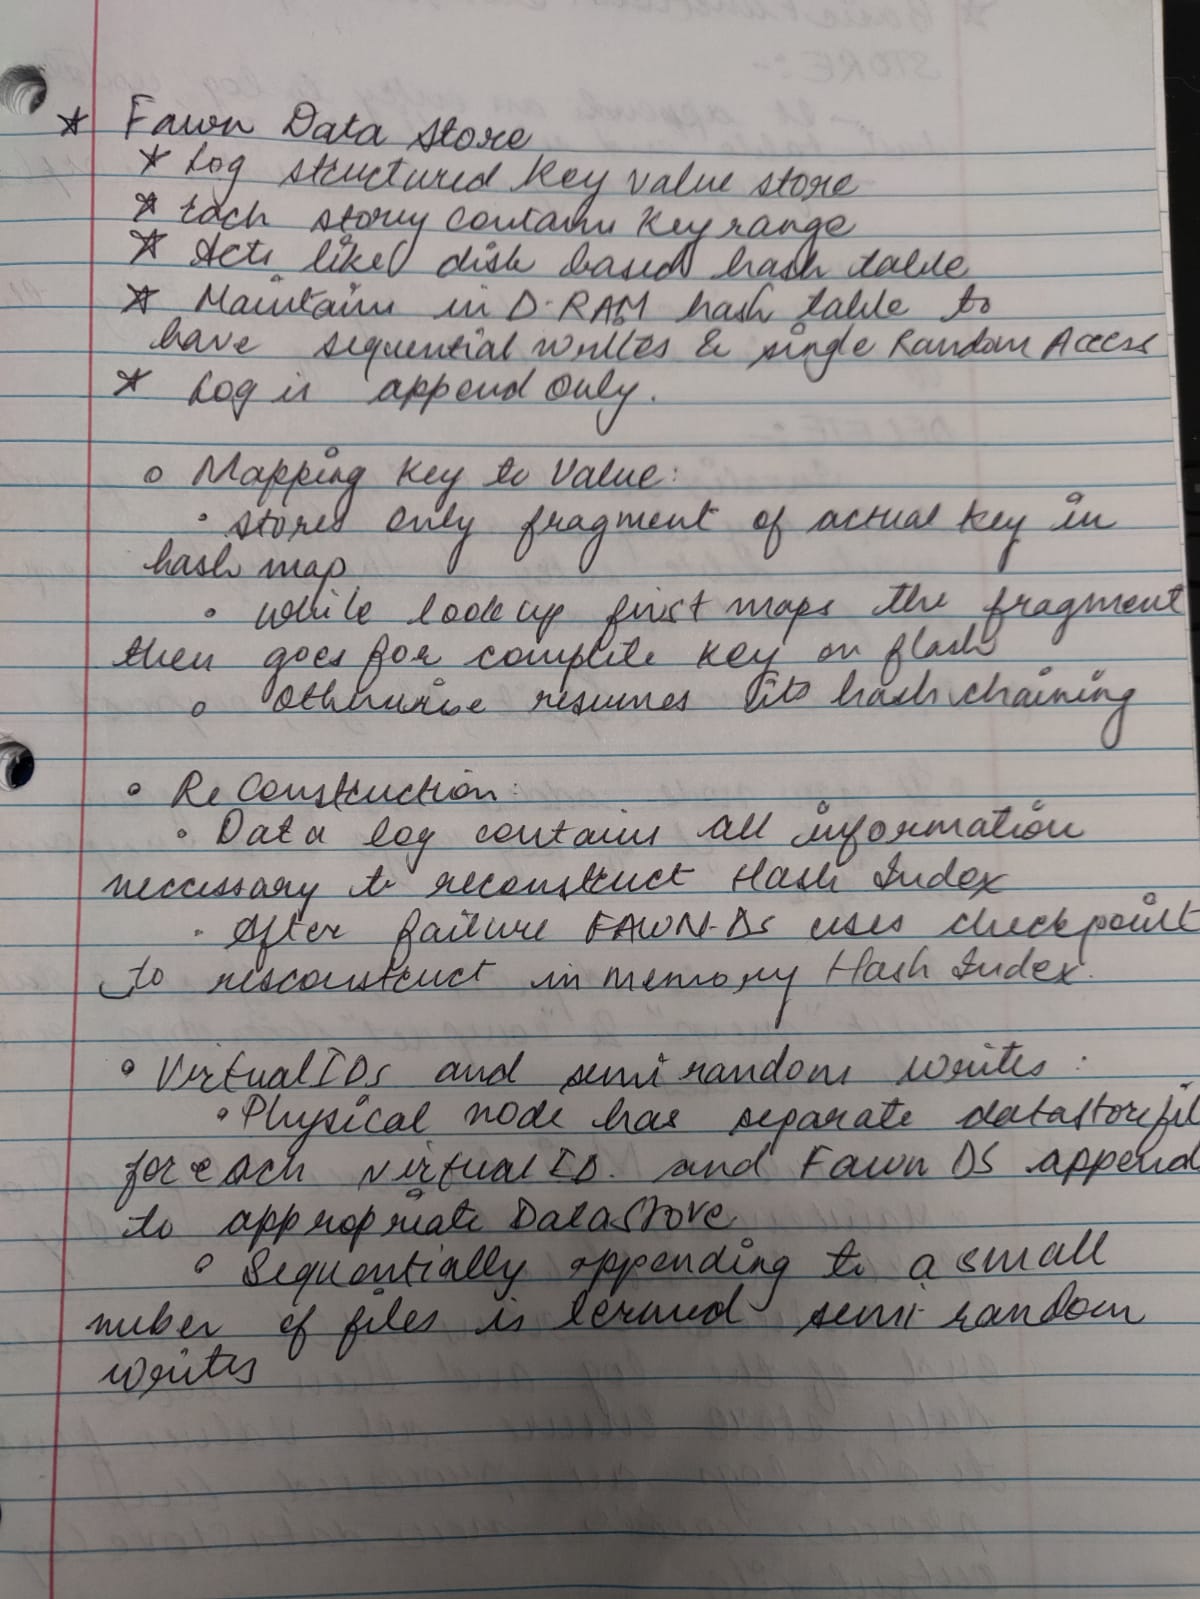 * Fawn Data Store
* Log structured key value store
* Each story contains Key range
* Acts like disk based hash table
* Maintains in D-RAM hash table to
have sequential writes & single Random Access
* Log is append only.
o Mapping key to Value:
• stores only fragment of actual key in
hash map
• while lookup first maps the fragment
then goes for complete key on flash
o Otherwise resumes its hash chaining
• ReConstruction:
• Data log contains all information
neccessary to reconstruct Hash Index
• After failure FAWN-DS uses checkpoint
to resconstruct in memory Hash Index.
• Virtual IDs and semi random writes:
• Physical node has separate datastore fil
for each virtual ID. and Fawn DS append
to appropriate Datastore
• Sequentially appending to a small
nuber of files is termed semi-random
writes